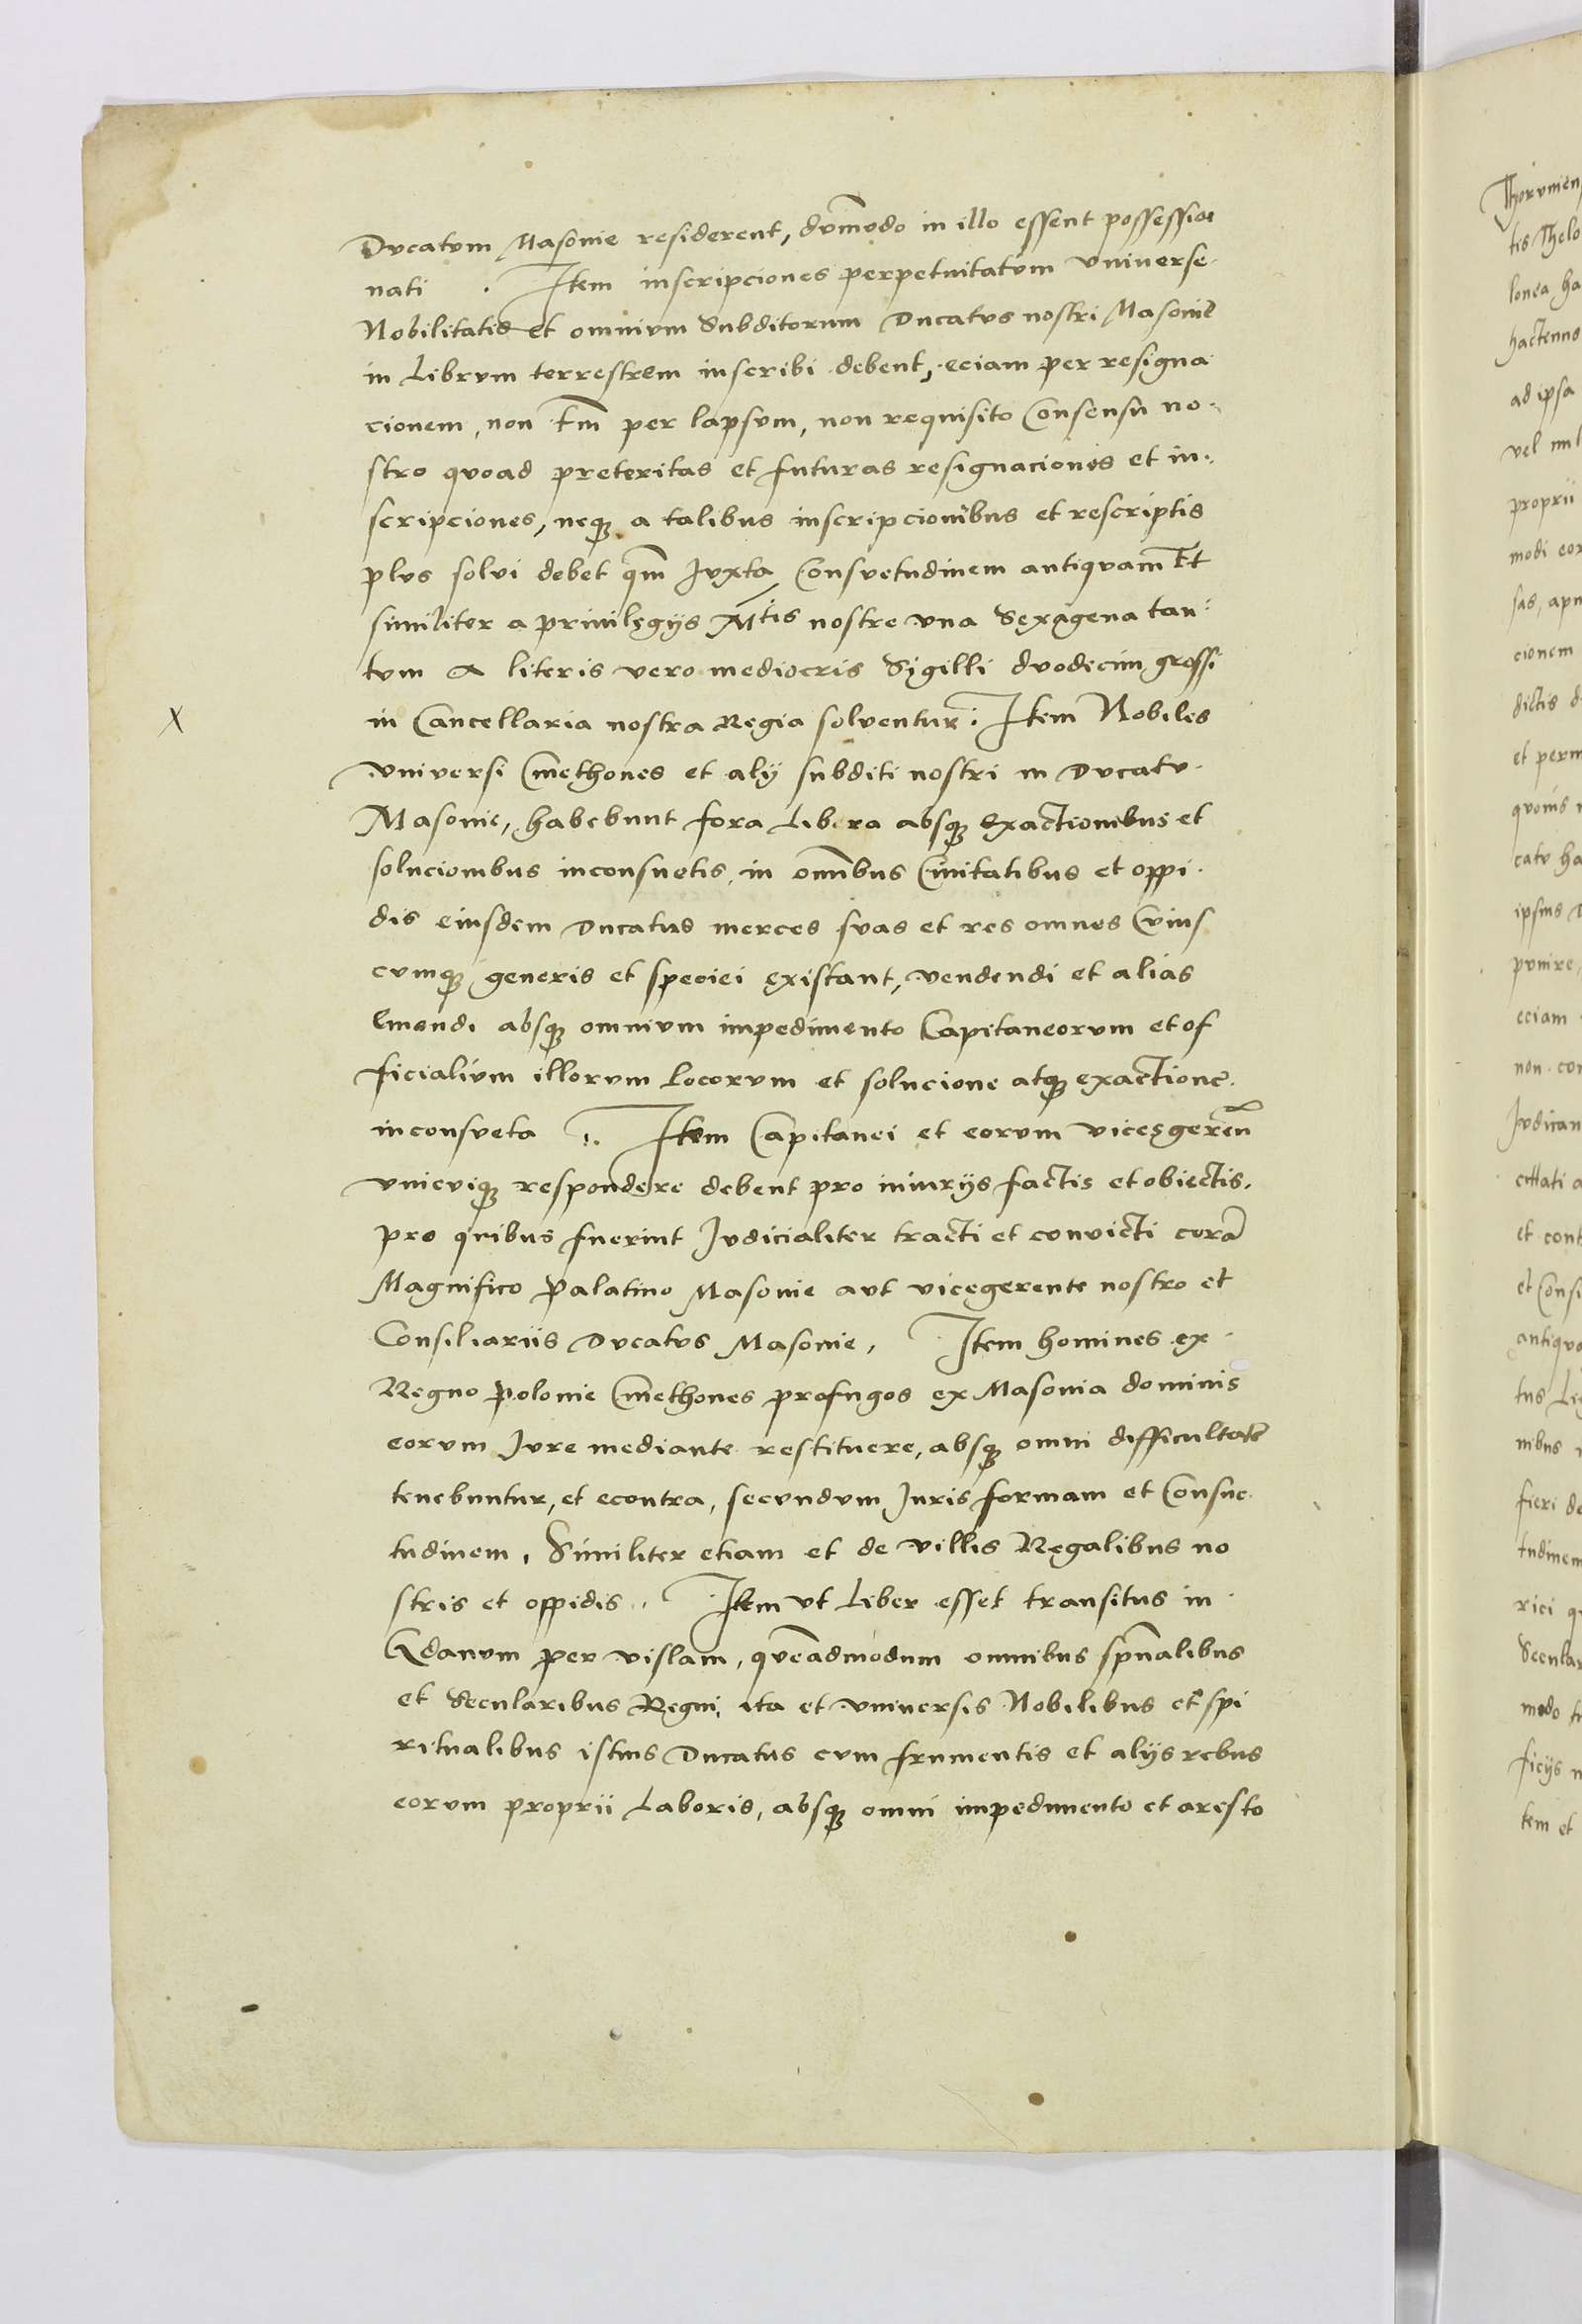 Ducatum Masovie residerent, dūmodo in illo essent possessio
nati . Item inscripciones perpetuitatum universe
Nobilitatis et omnium Subditorum Ducatus nostri Masovie
in Librum terrestrem inscribi debent, eciam per resigna
cionem, non tm̄ per lapsum, non requisito Consensu no-
stro quoad preteritas et futuras resignaciones et in-
scripciones, neqꝫ a talibus inscripcionibus et rescriptis
plus solvi debet qm̄ Juxta Consuetudinem antiquam Et
similiter a privilegijs Mtis nostre una Sexagena tan-
tum A literis vero mediocris Sigilli duodecim grossi
X in Cancellaria nostra Regia solventur. Item Nobiles
universi Cmethones et alij subditi nostri in Ducatu
Masovie, habebunt fora Libera absqꝫ exactionibus et
solucionibus inconsuetis, in om̄ibus Civitatibus et oppi-
dis eiusdem Ducatus merces suas et res omnes Cuius
cumqꝫ generis et speciei existant, vendendi et alias
emendi absqꝫ omnium impedimento Capitaneorum et of
ficialium illorum locorum et solucione atqꝫ exactione
inconsueta . Item Capitanei et eorum vicesgeren̄
unicuiqꝫ respondere debent pro iniurijs factis et obiectis,
pro quibus fuerint Judicialiter tracti et convicti corā
Magnifico Palatino Masovie aut vicegerente nostro et
Consiliariis Ducatus Masovie. Item homines ex
Regno Polonie Cmethones profugos ex Masovia dominis
eorum Jure mediante restituere, absqꝫ omni difficultate
tenebuntur, et econtra, secundum Juris formam et Consue
tudinem, Similiter etiam et de villis Regalibus no
stris et oppidis. Item ut Liber esset transitus in
Gdanum per vislam, quēadmodum omnibus spūalibus
et Secularibus Regni, ita et universis Nobilibus et spi
ritualibus istius Ducatus cum frumentis et alijs rebus
eorum proprii Laboris, absqꝫ omni impedimento et aresto
tis Thelo
lonea ha
hactenus
ad ipsa
proprii
cionem
dictis
et perm
ipsius
punire,
eciam
et Consi
fieri de
tudinem
Secular
tem et